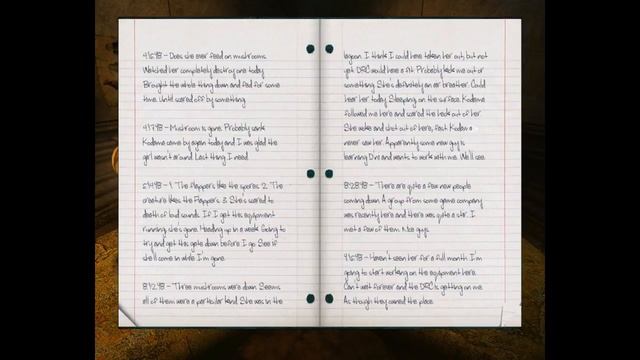 4.16.98 - Does she ever feed on mushrooms.
Watched her completely destroy one today.
Brought the whole thing down and fed for some
time. Until scared off by something.
4.17.98 - Mushroom is gone. Probably sank.
Kodama came by again today and I was glad the
girl wasn't around. Last thing I need.
5.14.98 - 1. The flappers like the spores. 2. The
creature likes the Flappers. 3. She's scared to
death of loud sounds. If I get this equipment
running, she's gone. Heading up in a week. Going to
try and get this gate down before I go. See if
she'll come in while I'm gone.
8.12.98 - Three mushrooms were down. Seems
all of them were a particular kind. She was in the
lagoon. I think I could have taken her out, but not
yet. DRC would have a fit. Probably kick me out or
something. She's definitely an air breather. Could
hear her today. Sleeping on the surface. Kodama
followed me here and scared the heck out of her.
She woke and shot out of here, fast. Kodama
never saw her. Apparently some new guy is
learning D'ni and wants to work with me. We'll see.
8.28.98 - There are quite a few new people
coming down. A group from some game company
was recently here and there was quite a stir. I
met a few of them. Nice guys.
Haven't seen her for a full month. I'm
going to start working on the equipment here.
Can't wait forever and the DRC is getting on me.
As though they owned the place.